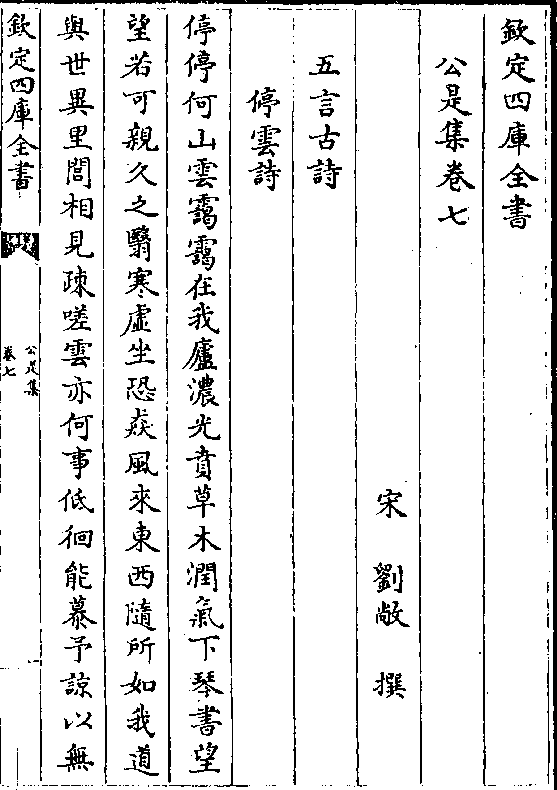 欽定四庫全書
公是集卷七
宋劉敞撰
五言古詩
停雲詩
停停何山雲靄靄在我廬濃光賁草木潤氣下琴書望
望若可親久之翳寒虛坐恐猋風來東西隨所如我道
與世異里閭相見疎嗟雲亦何事低徊能慕予諒以無
欽定四庫全書
公是集
卷七